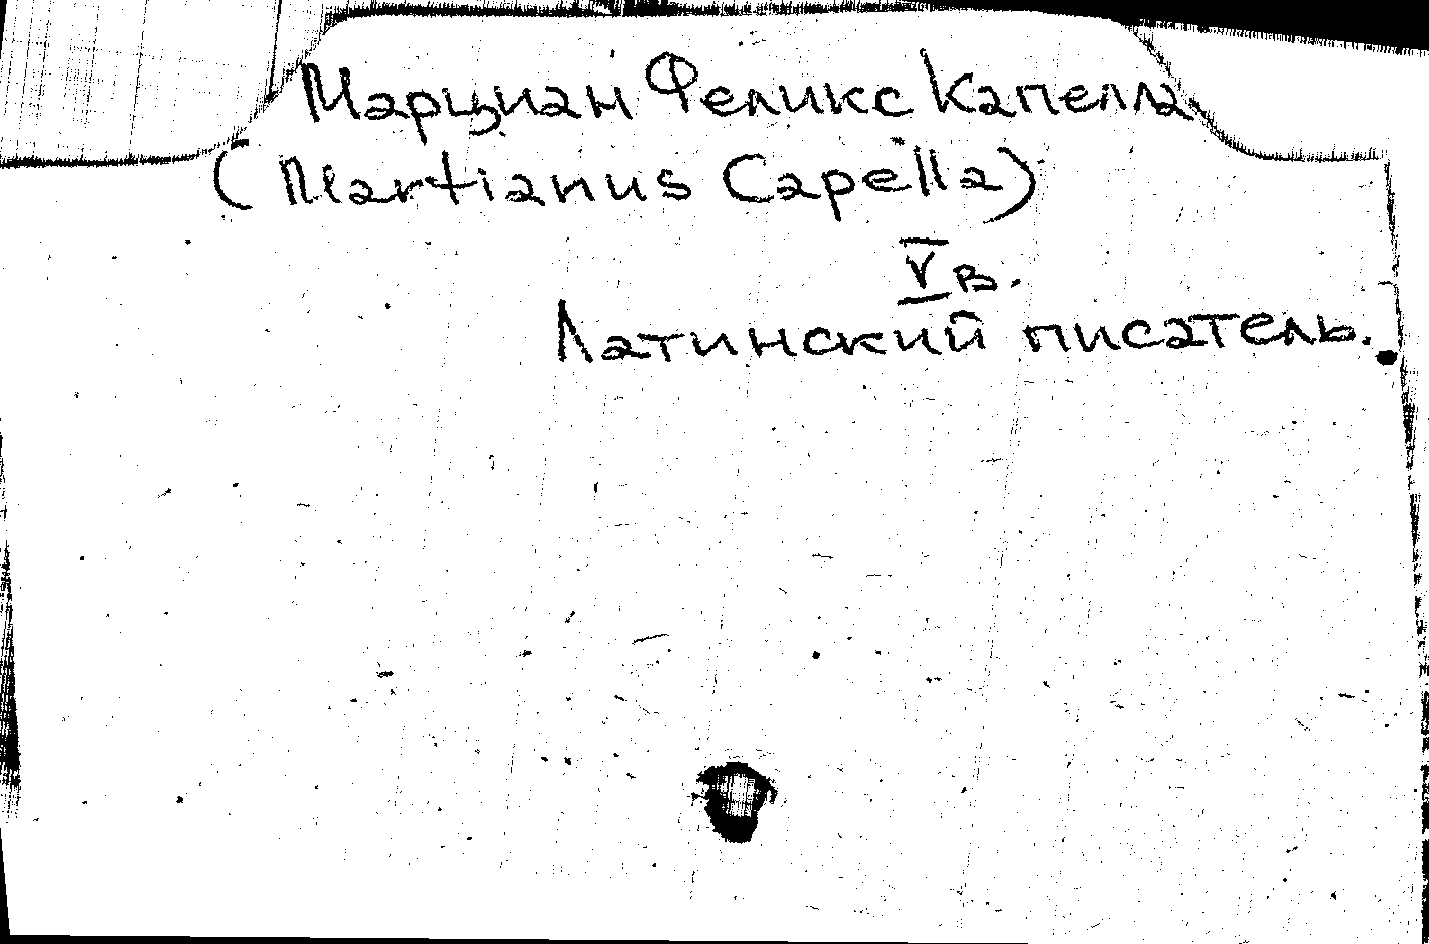 Марциан Феликс Капелла
(Martianus Capella)
V в.
Латинский писатель.